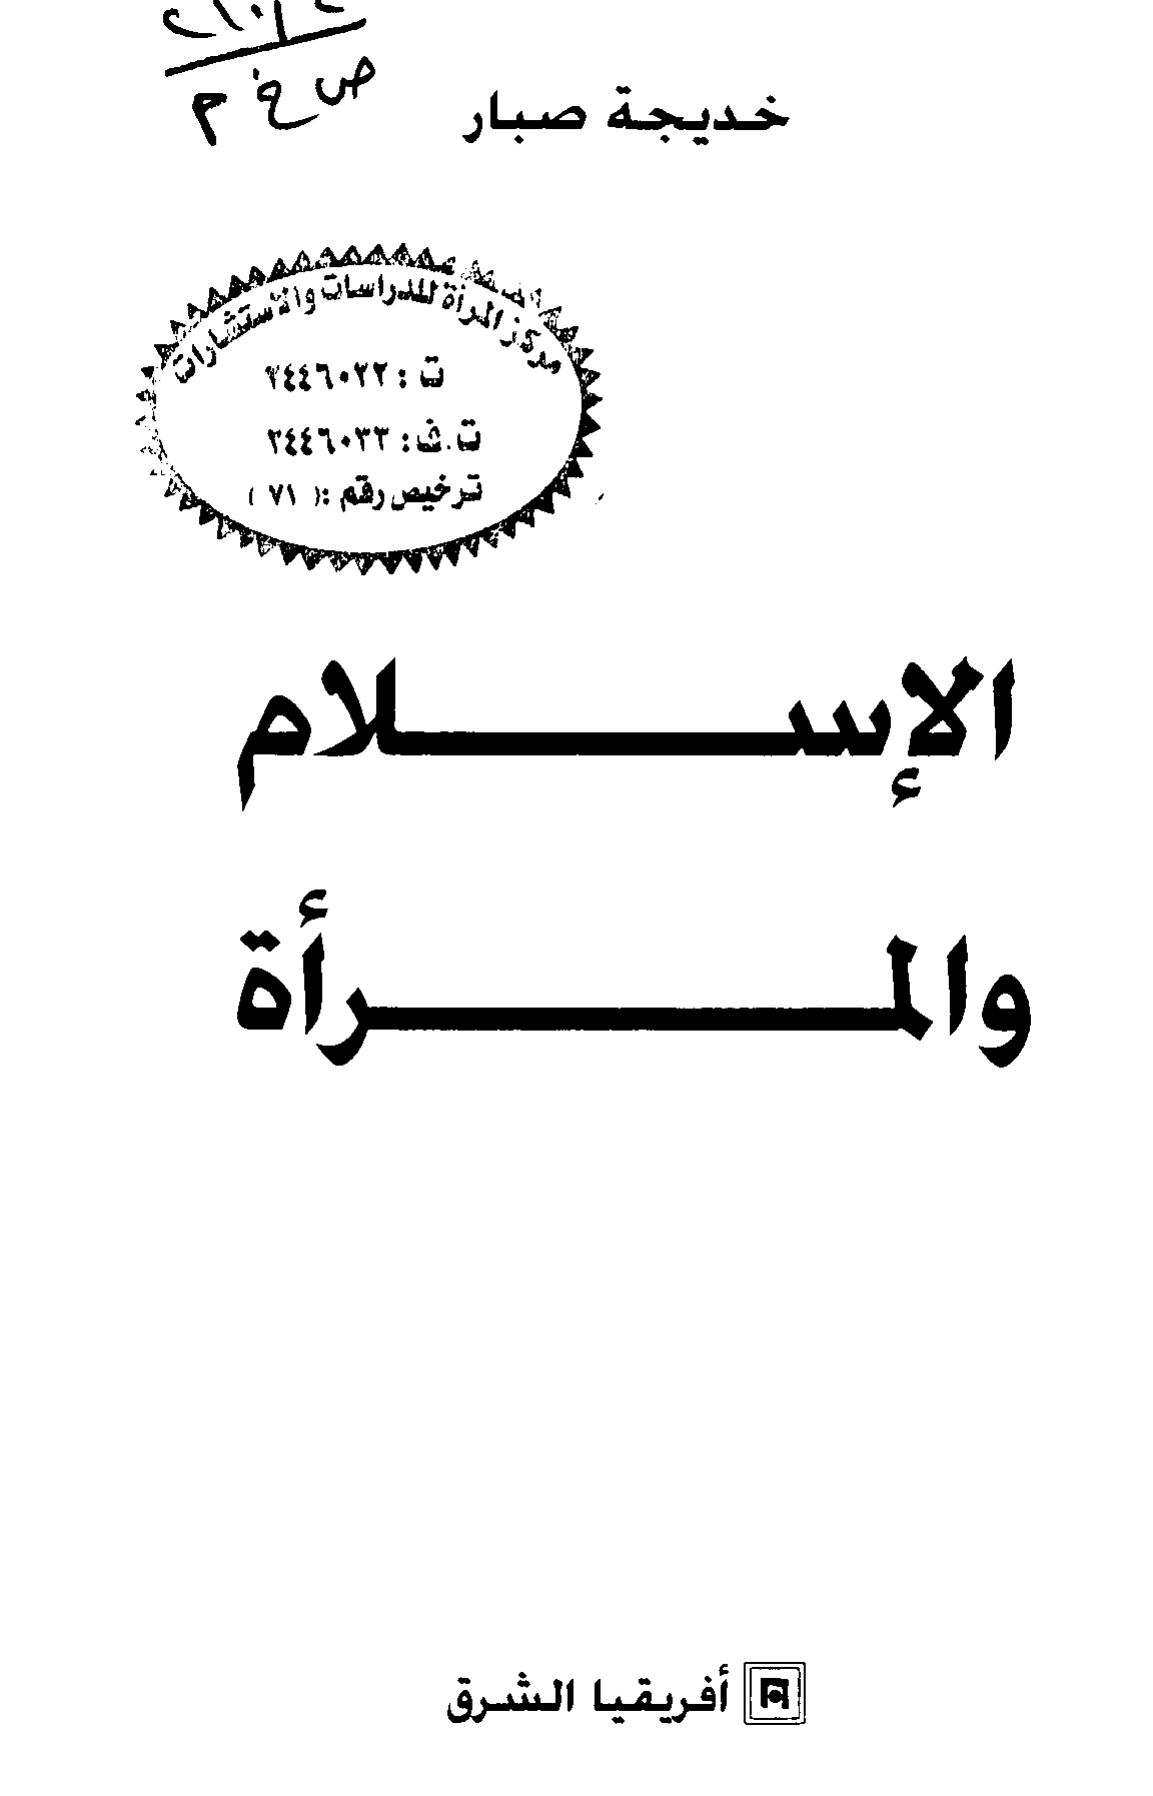 ص خ م
خديجة صبار
مركز المرأة للدراسات والاستشارات
ت : ٢٤٤٦٠٢٢
ت.ف: ٢٤٤٦٠٣٣
ترخيص رقم :( ٧١ )
الإسلام
والمرأة
أفريقيا الشرق